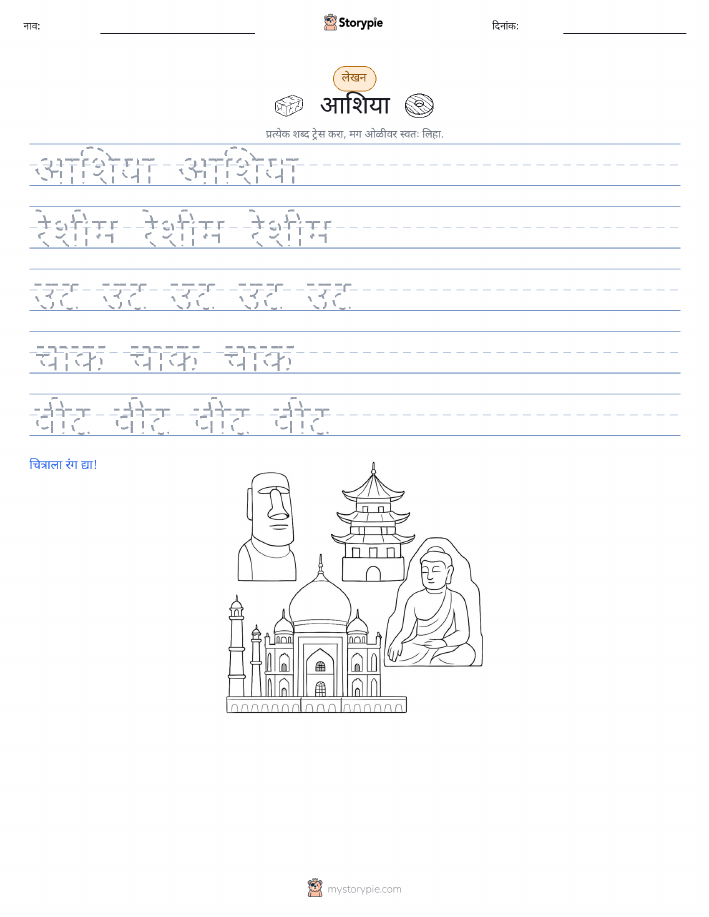 नाव:
Storypie
दिनांक:
लेखन
आशिया
प्रत्येक शब्द ट्रेस करा, मग ओळीवर स्वतः लिहा.
आशिया आशिया
रेशीम रेशीम रेशीम
उट उट उट उट उट
चाक चाक चाक
वीट वीट वीट वीट
चित्राला रंग द्या!
mystorypie.com